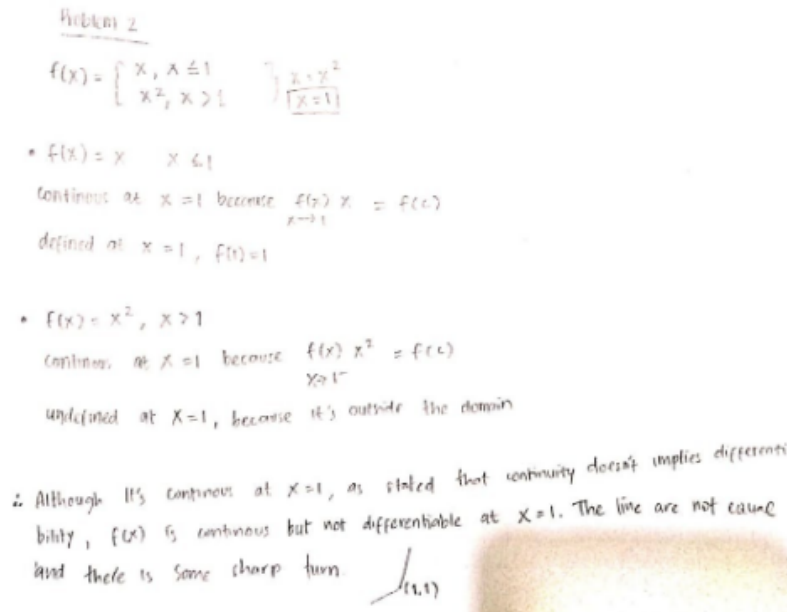 Problem 2
f(x) = { x, x ≤ 1 } x = x²
x², x > 1 x = 1
• f(x) = x x ≤ 1
continous at x = 1 because f(x) x = f(c)
x→1
defined at x = 1, f(1) = 1
• f(x) = x², x > 1
continous at x = 1 because f(x) x² = f(c)
x→1⁻
undefined at x = 1, because it's outside the domain
∴ Although it's continous at x = 1, as stated that continuity doesn't implies differenti
bility, f(x) is continous but not differentiable at x = 1. The line are not
and there is some sharp turn. (1,1)